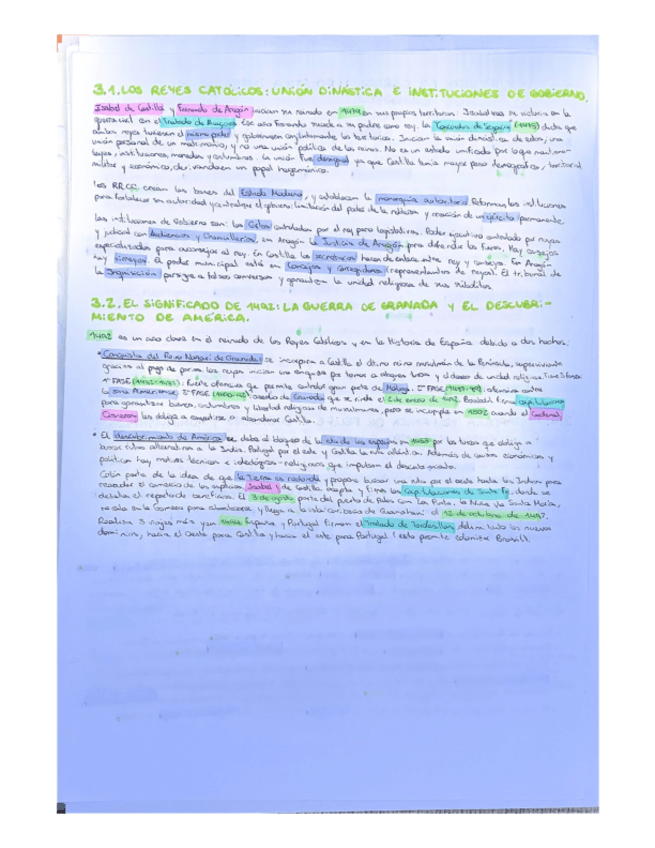 3.1. LOS REYES CATÓLICOS: UNIÓN DINÁSTICA E INSTITUCIONES DE GOBIERNO.
Isabel de Castilla y Fernando de Aragón inician su reinado en 1479 en sus propios territorios. Isabel tras su victoria en la
guerra civil en el Tratado de Alcaçovas. Ese año Fernando sucede a su padre como rey. La Concordia de Segovia (1475) dicta que
ambos reyes tuviesen el mismo poder y gobernasen conjuntamente los territorios. Inician la unión dinástica de estos, una
unión personal de un matrimonio, y no una unión política de los reinos. No es un estado unificado por lo que mantienen
leyes, instituciones, monedas y costumbres. La unión fue desigual ya que Castilla tenía mayor peso demográfico, territorial
militar y económico, derivando en un papel hegemónico.
Los RRCC crean las bases del Estado Moderno, y establecen la monarquía autoritaria. Reforman las instituciones
para fortalecer su autoridad y centralizar el gobierno: limitación del poder de la nobleza y creación de un ejército permanente.
Las instituciones de Gobierno son: las Cortes controladas por el rey para legislativas. Poder ejecutivo controlado por reyes
y judicial con Audiencias y Chancillerías, en Aragón la Justicia de Aragón para defender los fueros. Hay consejos
especializados para aconsejar al rey. En Castilla los secretarios hacen de enlace entre rey y consejos. En Aragón
hay virreyes. El poder municipal está en Concejos y corregidores (representantes de reyes). El tribunal de
la Inquisición persigue a falsos conversos y garantiza la unidad religiosa de sus súbditos.
3.2. EL SIGNIFICADO DE 1492: LA GUERRA DE GRANADA Y EL DESCUBRI-
MIENTO DE AMÉRICA.
1492 es un año clave en el reinado de los Reyes Católicos y en la Historia de España debido a dos hechos:
• Conquista del Reino Nazarí de Granada: se incorpora a Castilla el último reino musulmán de la Península, superviviente
gracias al pago de parias. Los reyes inician una conquista por y el deseo de unidad religiosa. Tiene 3 fases
1ª FASE (1482-1487). Fuerte ofensiva que permite controlar gran parte de Málaga. 2ª FASE (1487-89). ofensiva contra
la zona Almeriense. 3ª FASE asedio de Granada que se rinde el 2 de enero de 1492. Boabdil firma capitulaciones
para garantizar bienes, costumbres y libertad religiosa de musulmanes, pero se incumple en 1502 cuando el Cardenal
Cisneros les obliga a convertirse o abandonar Castilla.
• El descubrimiento de América se debe al bloqueo de la ruta de las especias en 1453 por los turcos que obliga a
buscar rutas alternativas a la India. Portugal por el este y Castilla la ruta atlántica. Además de causas económicas y
políticas hay motivos técnicos e ideológicos-religiosos que impulsan el descubrimiento.
Colón parte de la idea de que la tierra es redonda y propone buscar una ruta por el oeste hasta las Indias para
reanudar el comercio de las especias. Isabel I de Castilla acepta y firma las Capitulaciones de Santa Fe, donde se
detalla el reparto de beneficios. El 3 de agosto parte del puerto de Palos con La Pinta, la Niña y la Santa María,
recala en La Gomera para abastecerse y llega a la isla de Guanahaní el 12 de octubre de 1492.
Realiza 3 viajes más y en España y Portugal firman el Tratado de Tordesillas delimitando los nuevos
dominios, hacia el Oeste para Castilla y hacia el este para Portugal (esto permite colonizar Brasil).